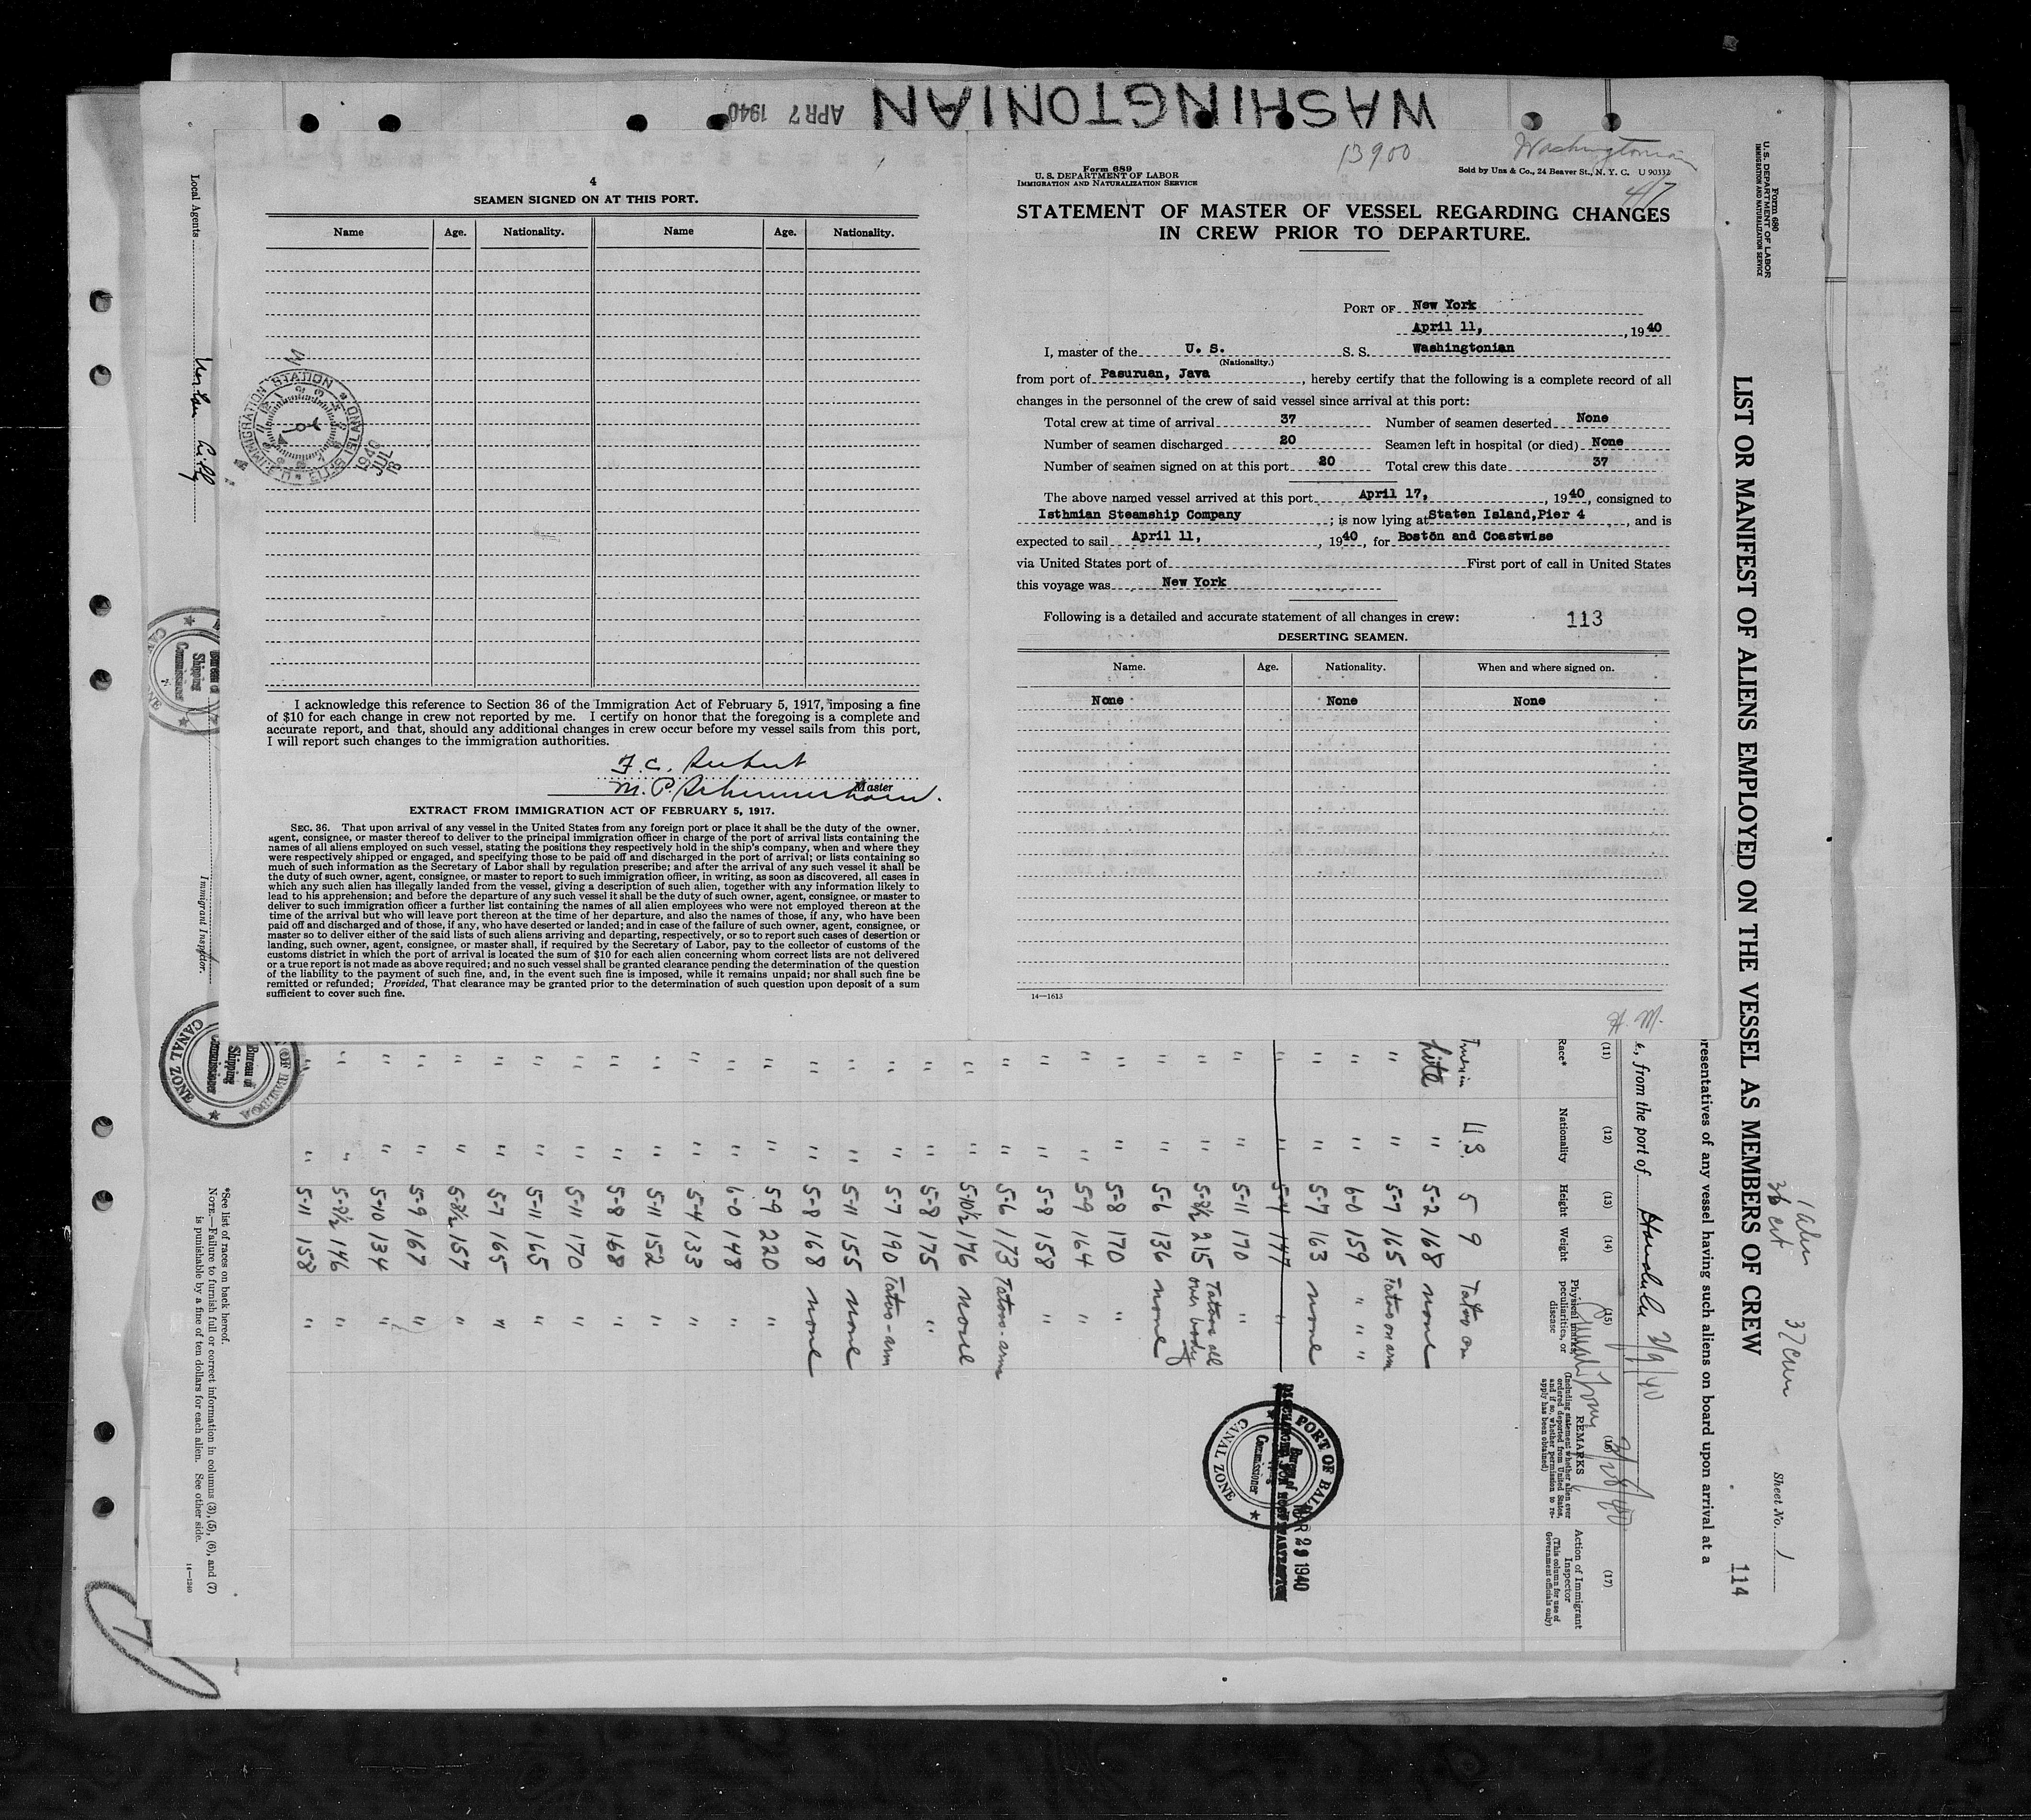 WASHINGTONIAN
APR 7 1940
4
SEAMEN SIGNED ON AT THIS PORT.
Name Age. Nationality. Name Age. Nationality.
I acknowledge this reference to Section 36 of the Immigration Act of February 5, 1917, imposing a fine
of $10 for each change in crew not reported by me. I certify on honor that the foregoing is a complete and
accurate report, and that, should any additional changes in crew occur before my vessel sails from this port,
I will report such changes to the immigration authorities.
Master
EXTRACT FROM IMMIGRATION ACT OF FEBRUARY 5, 1917.
SEC. 36. That upon arrival of any vessel in the United States from any foreign port or place it shall be the duty of the owner,
agent, consignee, or master thereof to deliver to the principal immigration officer in charge of the port of arrival lists containing the
names of all aliens employed on such vessel, stating the positions they respectively hold in the ship's company, when and where they
were respectively shipped or engaged, and specifying those to be paid off and discharged in the port of arrival; or lists containing so
much of such information as the Secretary of Labor shall by regulation prescribe; and after the arrival of any such vessel it shall be
the duty of such owner, agent, consignee, or master to report to such immigration officer, in writing, as soon as discovered, all cases in
which any such alien has illegally landed from the vessel, giving a description of such alien, together with any information likely to
lead to his apprehension; and before the departure of any such vessel it shall be the duty of such owner, agent, consignee, or master to
deliver to such immigration officer a further list containing the names of all alien employees who were not employed thereon at the
time of the arrival but who will leave port thereon at the time of her departure, and also the names of those, if any, who have been
paid off and discharged and of those, if any, who have deserted or landed; and in case of the failure of such owner, agent, consignee, or
master so to deliver either of the said lists of such aliens arriving and departing, respectively, or so to report such cases of desertion or
landing, such owner, agent, consignee, or master shall, if required by the Secretary of Labor, pay to the collector of customs of the
customs district in which the port of arrival is located the sum of $10 for each alien concerning whom correct lists are not delivered
or a true report is not made as above required; and no such vessel shall be granted clearance pending the determination of the question
of the liability to the payment of such fine, and, in the event such fine is imposed, while it remains unpaid; nor shall such fine be
remitted or refunded; Provided, That clearance may be granted prior to the determination of such question upon deposit of a sum
sufficient to cover such fine.
U.S. IMMIGRATION STATION ELLIS ISLAND
1940 JUL 18
13900
Washingtonian
4/7
Form 689
U. S. DEPARTMENT OF LABOR
IMMIGRATION AND NATURALIZATION SERVICE
Sold by Unz & Co., 24 Beaver St., N. Y. C. U 90332
STATEMENT OF MASTER OF VESSEL REGARDING CHANGES
IN CREW PRIOR TO DEPARTURE.
PORT OF New York
April 11, , 1940
I, master of the U. S. S. S. Washingtonian
(Nationality.)
from port of Pasuruan, Java , hereby certify that the following is a complete record of all
changes in the personnel of the crew of said vessel since arrival at this port:
Total crew at time of arrival 37 Number of seamen deserted None
Number of seamen discharged 20 Seamen left in hospital (or died) None
Number of seamen signed on at this port 20 Total crew this date 37
The above named vessel arrived at this port April 17, , 1940, consigned to
Isthmian Steamship Company ; is now lying at Staten Island, Pier 4 , and is
expected to sail April 11, , 1940, for Boston and Coastwise
via United States port of First port of call in United States
this voyage was New York
Following is a detailed and accurate statement of all changes in crew:
113
DESERTING SEAMEN.
Name. Age. Nationality. When and where signed on.
None None None
14—1613
H. M.
Form 680
U. S. DEPARTMENT OF LABOR
IMMIGRATION AND NATURALIZATION SERVICE
LIST OR MANIFEST OF ALIENS EMPLOYED ON THE VESSEL AS MEMBERS OF CREW
36 cit
Sheet No. 1
114
resentatives of any vessel having such aliens on board upon arrival at a
, from the port of Honolulu 3/9/40
(11) (12) (13) (14) (15) (16) (17)
Race* Nationality Height Weight Physical marks, peculiarities, or disease
REMARKS
(Including statement whether alien ever
ordered deported from United States,
and if so, whether permission to re-
apply has been obtained)
Action of Immigrant
Inspector
(This column for use of
Government officials only)
U.S. 5 9 Tatoo on
hite " 5-2 168 none
" " 5-7 165 Tatoo on arm
" " 6-0 159 " "
" " 5-7 163 none
" " 5-4 147 "
" " 5-11 170 "
" " 5-8½ 215 Tatoos all over body
" " 5-6 136 none
" " 5-8 170 "
" " 5-9 164 "
" " 5-8 158 "
" " 5-6 173 Tatoos-arm
" " 5-10½ 176 none
" " 5-8 175 "
" " 5-7 190 Tatoos-arm
" " 5-11 155 none
" " 5-8 168 none
" " 5-9 220 "
" " 6-0 148 "
" " 5-4 133 "
" " 5-11 152 "
" " 5-8 168 "
" " 5-11 170 "
" " 5-11 165 "
" " 5-7 165 "
" " 5-8½ 157 "
" " 5-9 167 "
" " 5-10 134 "
" " 5-8½ 146 "
" " 5-11 158 "
PORT OF BALBOA
Bureau of
Shipping
Commissioner
CANAL ZONE
MAR 29 1940
PORT OF BALBOA
Bureau of
Shipping
Commissioner
CANAL ZONE
Bureau of
Shipping
Commissioner
Local Agents
Immigrant Inspector.
*See list of races on back hereof.
NOTE.—Failure to furnish full or correct information in columns (3), (5), (6), and (7)
is punishable by a fine of ten dollars for each alien. See other side.
14—1240